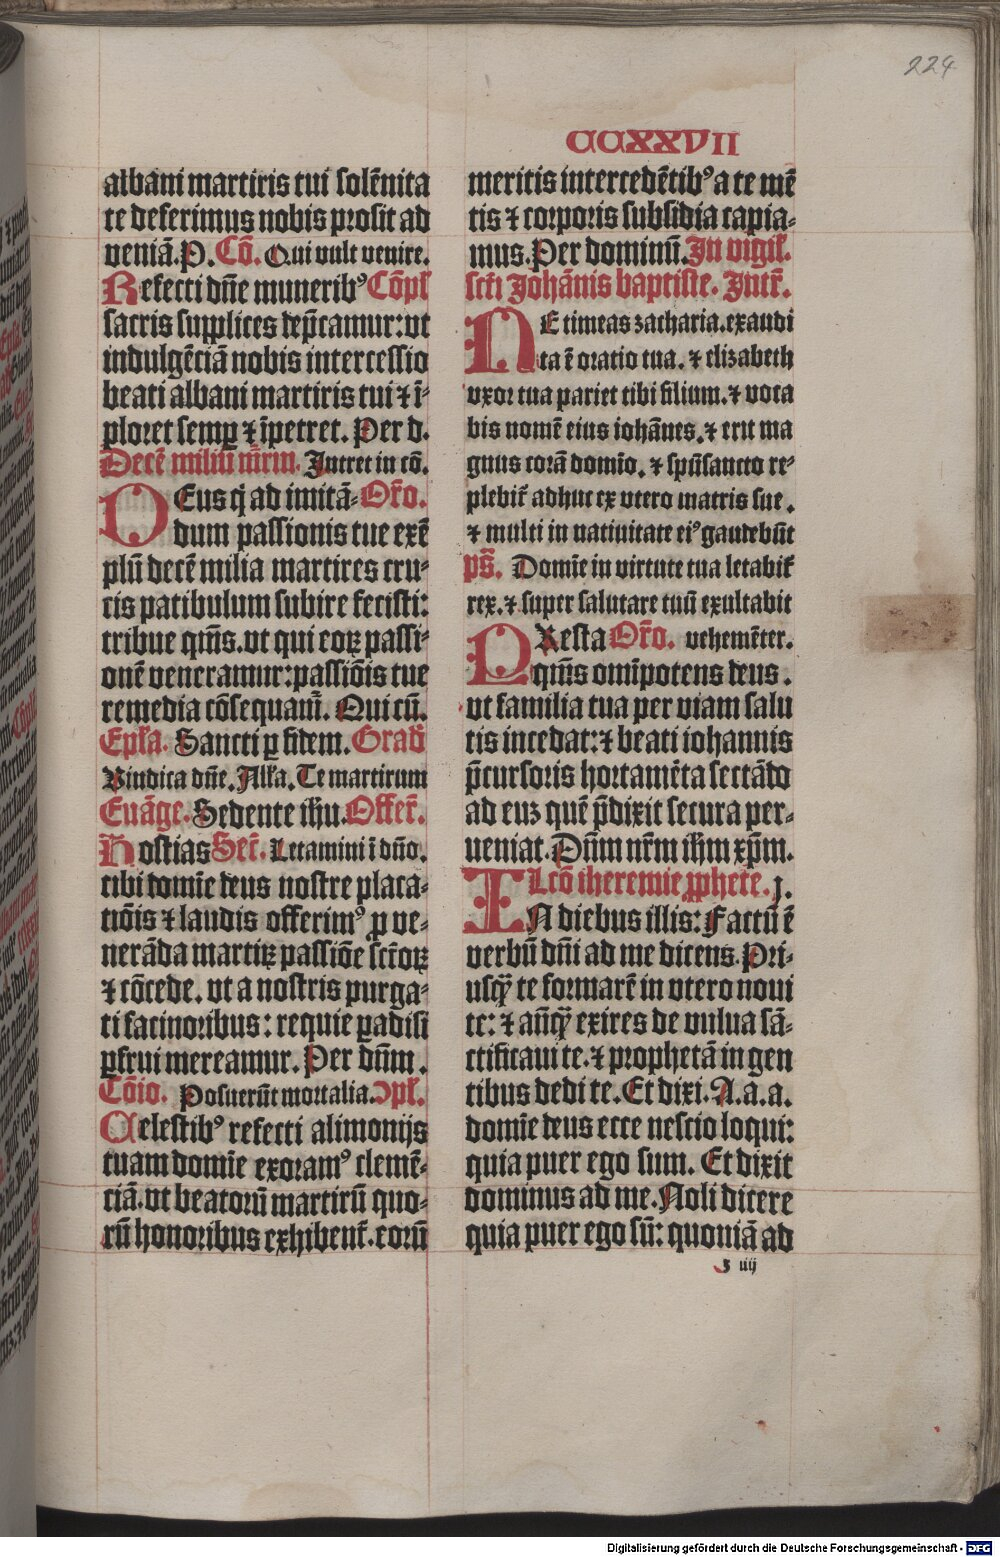 224
CCXXVII
albani martiris tui solēnita
te deferimus nobis prosit ad
veniā. P. Cō. Qui vult venire.
Refecti dn̄e munerib⁹ Cōpl̄
sacris supplices dep̄camur: vt
indulgēciā nobis intercessio
beati albani martiris tui ⁊ ī-
ploret semꝑ ⁊ īpetret. Per d.
Decē miliū mr̄m. Intret in cō.
DEus q̇ ad imitā- Or̄o.
dum passionis tue exē
plū decē milia martires cru-
cis patibulum subire fecisti:
tribue qm̄s. vt qui eoꝝ passi-
onē veneramur: passiōis tue
remedia cōsequam̄. Qui cū.
Epl̄a. Sancti ꝑ fidem. Grad̄
Vindica dn̄e. All̄a. Te martirum
Euāge. Sedente ihu. Offer̄.
Hostias Secr̄. Letamini ī dn̄o.
tibi domīe deus nostre placa-
tiōis ⁊ laudis offerim⁹ ꝑ ve-
nerāda martiꝝ passiōe sct̄oꝝ
⁊ cōcede. vt a nostris purga-
ti facinoribus: requie ꝑadisi
ꝑfrui mereamur. Per dn̄m.
Cōio. Posuerūt mortalia. Ↄpl̄.
Celestib⁹ refecti alimonijs
tuam domīe exoram⁹ clemē-
ciā. vt beatorū martirū quo-
rū honoribus exhibent̄. eorū
meritis intercedētib⁹ a te mē
tis ⁊ corporis subsidia capia-
mus. Per dominū. In vigil̄.
scti Johānis baptiste. Intr̄.
NE timeas zacharia. exaudi
ta ē oratio tua. ⁊ elizabeth
vxor tua pariet tibi filium. ⁊ voca
bis nomē eius iohānes. ⁊ erit ma
gnus corā domīo. ⁊ spūsancto re-
plebit̄ adhuc ex vtero matris sue.
⁊ multi in natiuitate ei⁹ gaudebūt
ps̄. Domīe in virtute tua letabit̄
rex. ⁊ super salutare tuū exultabit
PResta Or̄o. vehemēter.
qm̄s omīpotens deus.
vt familia tua per viam salu
tis incedat: ⁊ beati iohannis
p̄cursoris hortamēta sectādo
ad euꝫ quē p̄dixit secura per-
ueniat. Dn̄m nr̄m ihm xp̄m.
Lcō iheremie ꝓphete. j.
IN diebus illis: Factū ē
verbū dn̄i ad me dicens. Pri-
usꝙ̄ te formarē in vtero noui
te: ⁊ an̄ꝙ̄ exires de vulua sā-
ctificaui te. ⁊ prophetā in gen
tibus dedi te. Et dixi. A. a. a.
domīe deus ecce nescio loqui:
quia puer ego sum. Et dixit
dominus ad me. Noli dicere
quia puer ego sū: quoniā ad
iiij
Digitalisierung gefördert durch die Deutsche Forschungsgemeinschaft - DFG